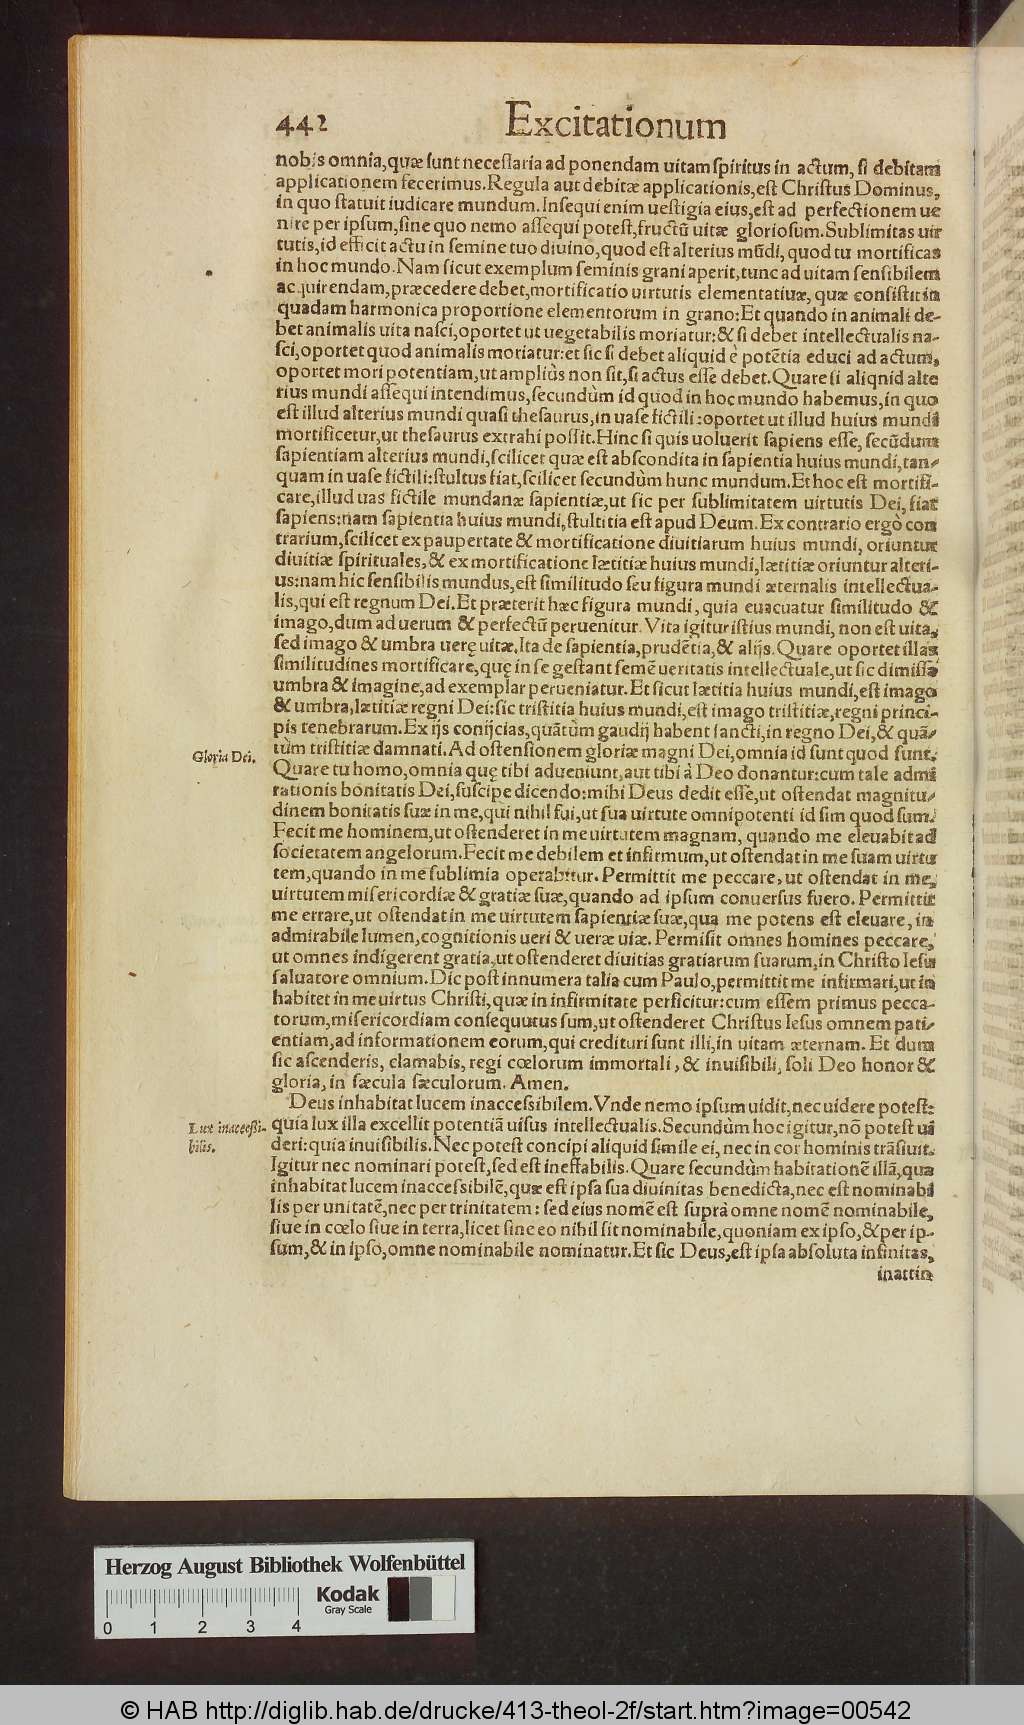 442 Excitationum
nobis omnia,quæ sunt necessaria ad ponendam uitam spiritus in actum, si debitam
applicationem fecerimus.Regula aut debitæ applicationis,est Christus Dominus,
in quo statuit iudicare mundum.Insequi enim uestigia eius,est ad perfectionem ue
nire per ipsum,sine quo nemo assequi potest,fructũ uitæ gloriosum.Sublimitas uir
tutis,id efficit actu in semine tuo diuino,quod est alterius mũdi,quod tu mortificas
in hoc mundo.Nam sicut exemplum seminis grani aperit,tunc ad uitam sensibilem
acquirendam,præcedere debet,mortificatio uirtutis elementatiuæ, quæ consistit in
quadam harmonica proportione elementorum in grano:Et quando in animali de-
bet animalis uita nasci,oportet ut uegetabilis moriatur:& si debet intellectualis na-
sci,oportet quod animalis moriatur:et sic si debet aliquid è potẽtia educi ad actum,
oportet mori potentiam,ut ampliùs non sit,si actus esse debet.Quare si aliqnid alte
rius mundi assequi intendimus,secundùm id quod in hoc mundo habemus,in quo
est illud alterius mundi quasi thesaurus,in uase fictili:oportet ut illud huius mundi
mortificetur,ut thesaurus extrahi possit.Hinc si quis uoluerit sapiens esse, secũdum
sapientiam alterius mundi,scilicet quæ est abscondita in sapientia huius mundi,tan-
quam in uase fictili:stultus fiat,scilicet secundùm hunc mundum.Et hoc est mortifi-
care,illud uas fictile mundanæ sapientiæ,ut sic per sublimitatem uirtutis Dei, fiat
sapiens:nam sapientia huius mundi,stultitia est apud Deum. Ex contrario ergò con
trarium,scilicet ex paupertate & mortificatione diuitiarum huius mundi, oriuntur
diuitiæ spirituales,& ex mortificatione lætitiæ huius mundi,lætitiæ oriuntur alteri-
us:nam hic sensibilis mundus,est similitudo seu figura mundi æternalis intellectua-
lis,qui est regnum Dei.Et præterit hæc figura mundi, quia euacuatur similitudo &
imago,dum ad uerum & perfectũ peruenitur. Vita igitur istius mundi, non est uita,
sed imago & umbra uerę uitæ.Ita de sapientia,prudẽtia,& alijs. Quare oportet illas
similitudines mortificare,quę in se gestant semẽ ueritatis intellectuale,ut sic dimissa
umbra & imagine,ad exemplar perueniatur.Et sicut lætitia huius mundi,est imago
& umbra,lætitiæ regni Dei:sic tristitia huius mundi,est imago tristitiæ,regni princi-
pis tenebrarum.Ex ijs conijcias,quãtùm gaudij habent sancti,in regno Dei,& quã-
tùm tristitiæ damnati.Ad ostensionem gloriæ magni Dei,omnia id sunt quod sunt.
Gloria Dei.
Quare tu homo,omnia quę tibi adueniunt,aut tibi à Deo donantur:cum tale admi
rationis bonitatis Dei,suscipe dicendo:mihi Deus dedit esse,ut ostendat magnitu-
dinem bonitatis suæ in me,qui nihil fui,ut sua uirtute omnipotenti id sim quod sum.
Fecit me hominem,ut ostenderet in me uirtutem magnam, quando me eleuabit ad
societatem angelorum.Fecit me debilem et infirmum,ut ostendat in me suam uirtu
tem,quando in me sublimia operabitur. Permittit me peccare, ut ostendat in me,
uirtutem misericordiæ & gratiæ suæ,quando ad ipsum conuersus fuero. Permittit
me errare,ut ostendat in me uirtutem sapientiæ suæ,qua me potens est eleuare, in
admirabile lumen,cognitionis ueri & ueræ uiæ. Permisit omnes homines peccare,
ut omnes indigerent gratia,ut ostenderet diuitias gratiarum suarum,in Christo Iesu
saluatore omnium.Dic post innumera talia cum Paulo,permittit me infirmari,ut in
habitet in me uirtus Christi,quæ in infirmitate perficitur:cum essem primus pecca-
torum,misericordiam consequutus sum,ut ostenderet Christus Iesus omnem pati-
entiam,ad informationem eorum,qui credituri sunt illi,in uitam æternam. Et dum
sic ascenderis, clamabis, regi cœlorum immortali, & inuisibili, soli Deo honor &
gloria, in sæcula sæculorum. Amen.
Deus inhabitat lucem inaccessibilem.Vnde nemo ipsum uidit,nec uidere potest:
Lux inaccessi-
bilis.
quia lux illa excellit potentiã uisus intellectualis.Secundùm hoc igitur,nõ potest ui
deri:quia inuisibilis.Nec potest concipi aliquid simile ei, nec in cor hominis trãsiuit.
Igitur nec nominari potest,sed est ineffabilis.Quare secundùm habitationẽ illã,qua
inhabitat lucem inaccessibilẽ,quæ est ipsa sua diuinitas benedicta,nec est nominabi
lis per unitatẽ,nec per trinitatem: sed eius nomẽ est suprà omne nomẽ nominabile,
siue in cœlo siue in terra,licet sine eo nihil sit nominabile,quoniam ex ipso,& per ip-
sum,& in ipso,omne nominabile nominatur.Et sic Deus,est ipsa absoluta infinitas,
inattin
Herzog August Bibliothek Wolfenbüttel
Kodak
Gray Scale
0 1 2 3 4
© HAB http://diglib.hab.de/drucke/413-theol-2f/start.htm?image=00542